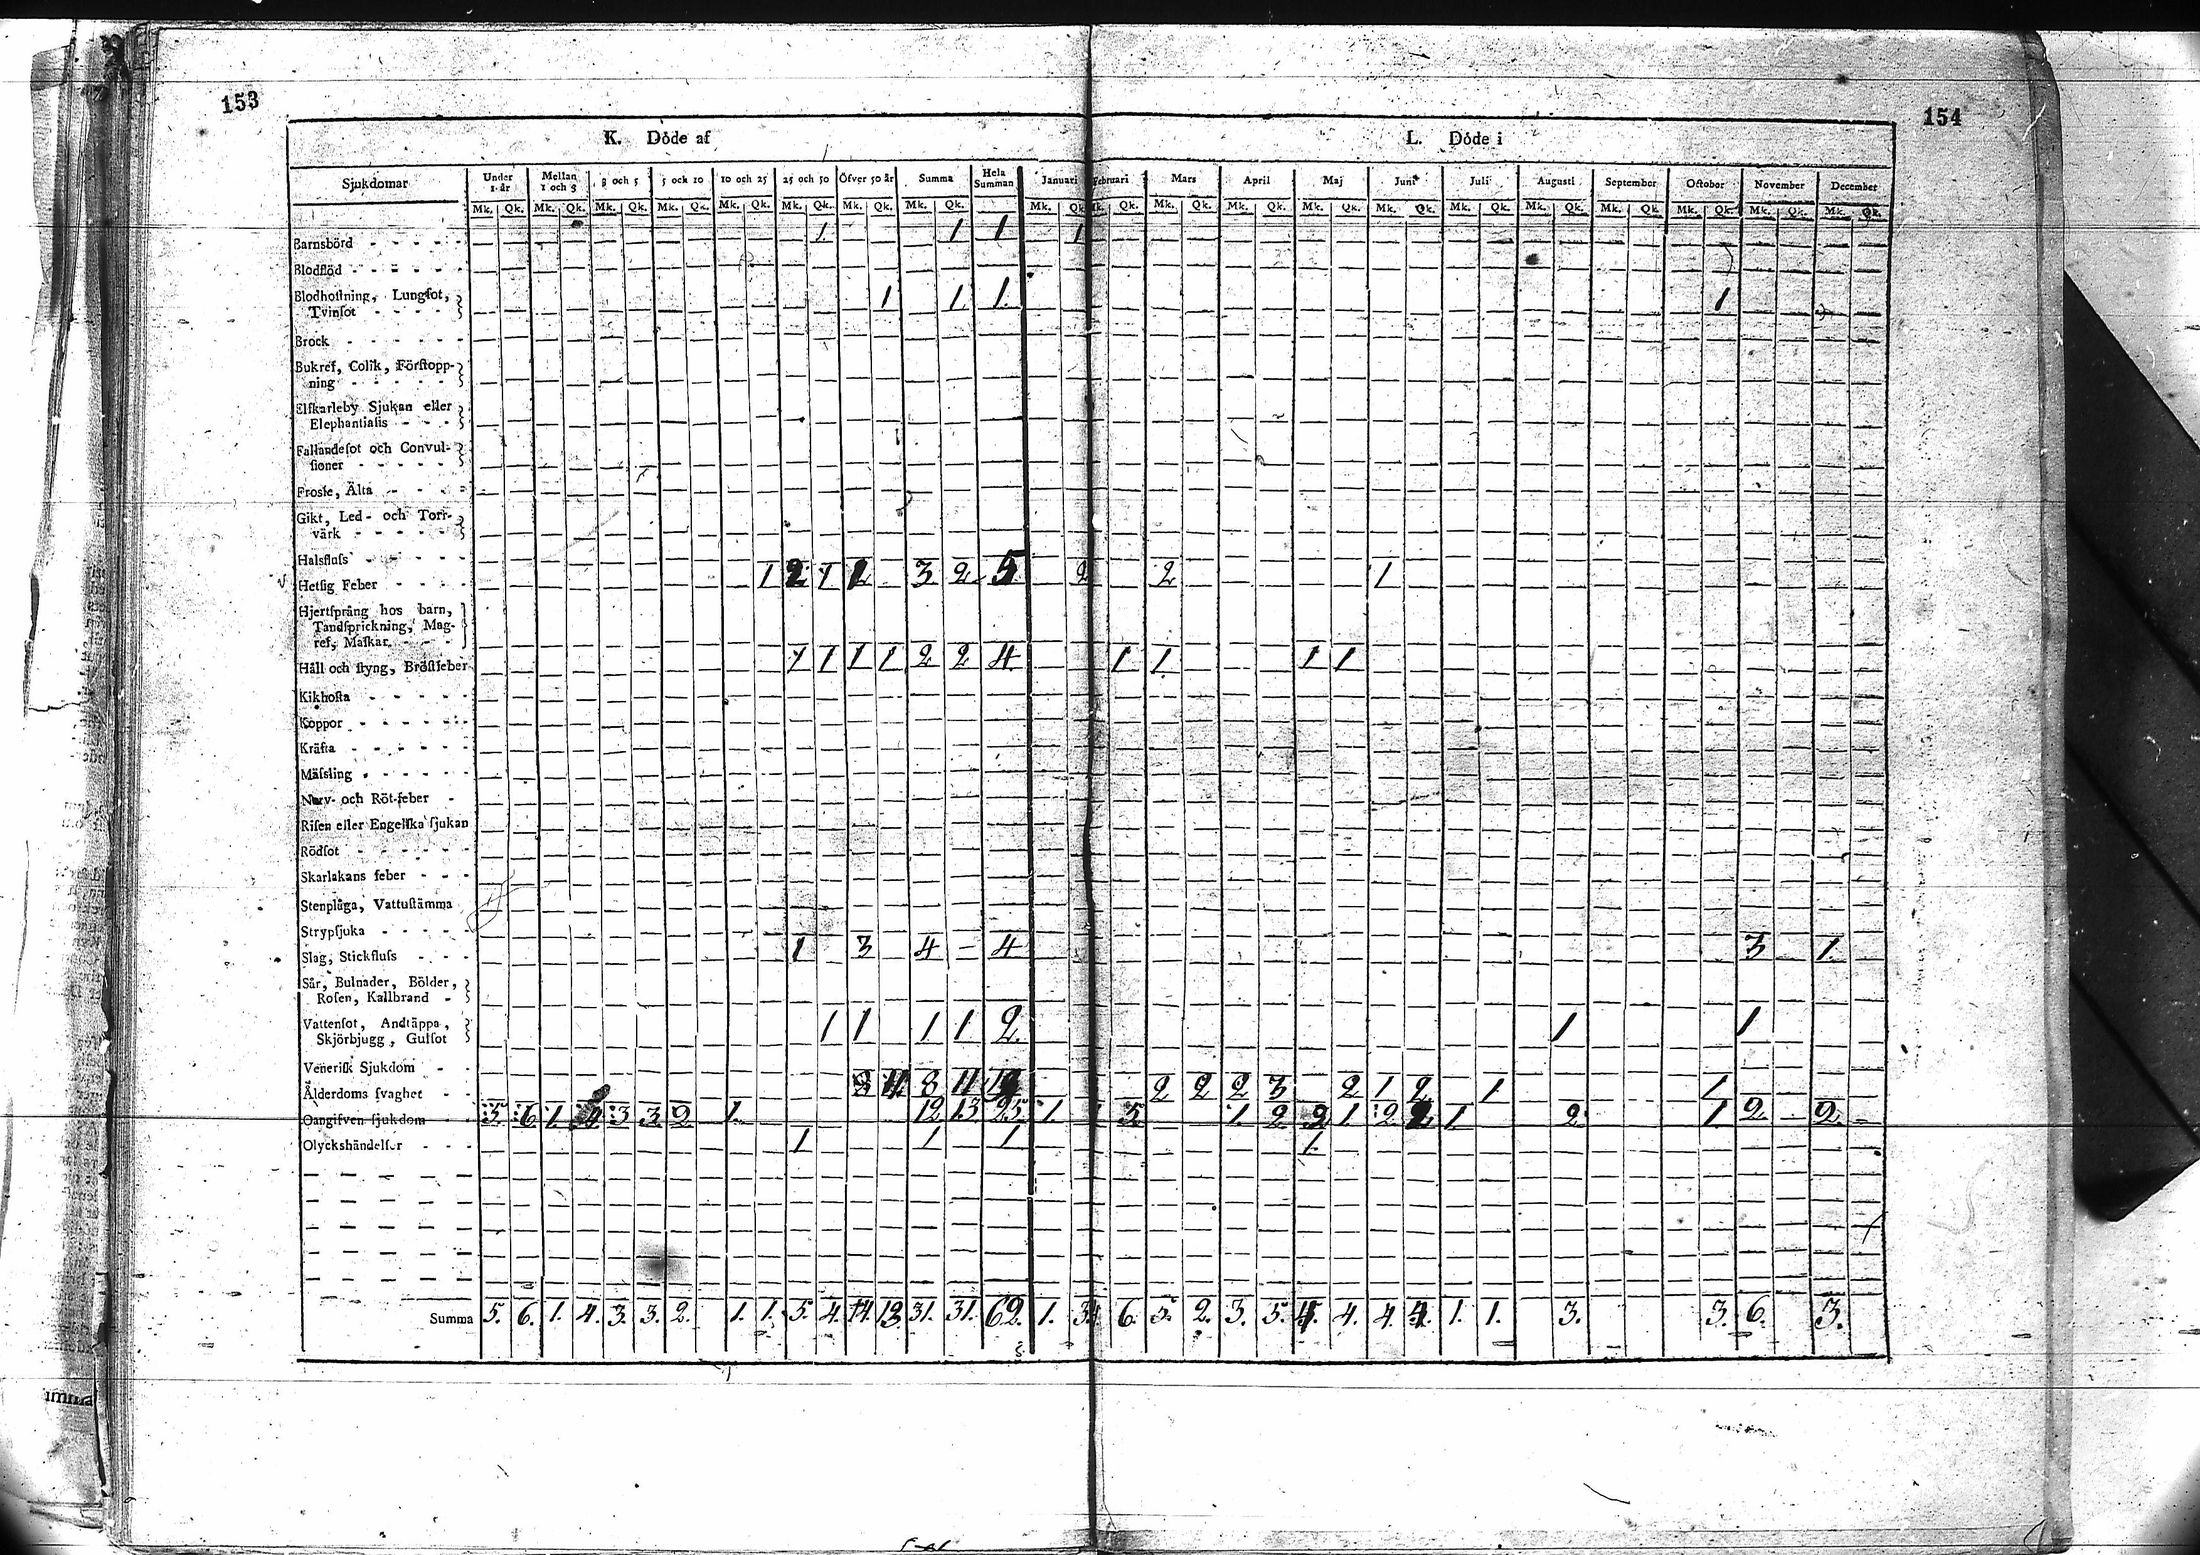 153
154
K. Döde af
L. Döde i
Sjukdomar Under 1. år Mellan 1 och 3 3 och 5 5 och 10 10 och 25 25 och 50 Öfver 50 år Summa Hela Summan Januari Februari Mars April Maj Juni Juli Augusti September October November December
Mk. Qk. Mk. Qk. Mk. Qk. Mk. Qk. Mk. Qk. Mk. Qk. Mk. Qk. Mk. Qk. Mk. Qk. Mk. Qk. Mk. Qk. Mk. Qk. Mk. Qk. Mk. Qk. Mk. Qk. Mk. Qk. Mk. Qk. Mk. Qk. Mk. Qk. Mk. Qk.
Barnsbörd 1 1 1 1
Blodflöd
Blodhostning, Lungsot,
Tvinsot 1 1 1 1
Brock
Bukref, Colik, Förstopp-
ning
Elskarleby Sjukan eller
Elephantiasis
Fallandesot och Convul-
sioner
Frosse, Älta
Gikt, Led- och Torr-
värk
Halsfluss
Hetsig Feber 1 2 1 1 3 2 5 2 2 1
Hjertsprång hos barn,
Tandsprickning, Mag-
ref, Maskar
Håll och styng, Bröstfeber 1 1 1 1 2 2 4 1 1 1 1
Kikhosta
Koppor
Kräfta
Mässling
Nerv- och Röt-feber
Risen eller Engelska sjukan
Rödsot
Skarlakans feber
Stenplåga, Vattustämma
Strypsjuka
Slag, Stickfluss 1 3 4 4 3 1
Sår, Bulnader, Bölder,
Rosen, Kallbrand
Vattensot, Andtäppa,
Skjörbjugg, Gulsot 1 1 1 1 2 1 1
Venerisk Sjukdom
Ålderdoms svaghet 8 11 8 11 19 2 2 2 3 2 1 2 1 1
Oangifven sjukdom 5 6 1 4 3 3 2 1 12 13 25 1 5 1 2 2 1 2 2 1 2 1 2 2
Olyckshändelser 1 1 1 1
Summa 5. 6. 1. 4. 3. 3. 2. 1. 1. 5. 4. 14. 13. 31. 31. 62. 1. 3. 6. 5. 2. 3. 5. 4. 4. 4. 4. 1. 1. 3. 3. 6. 3.